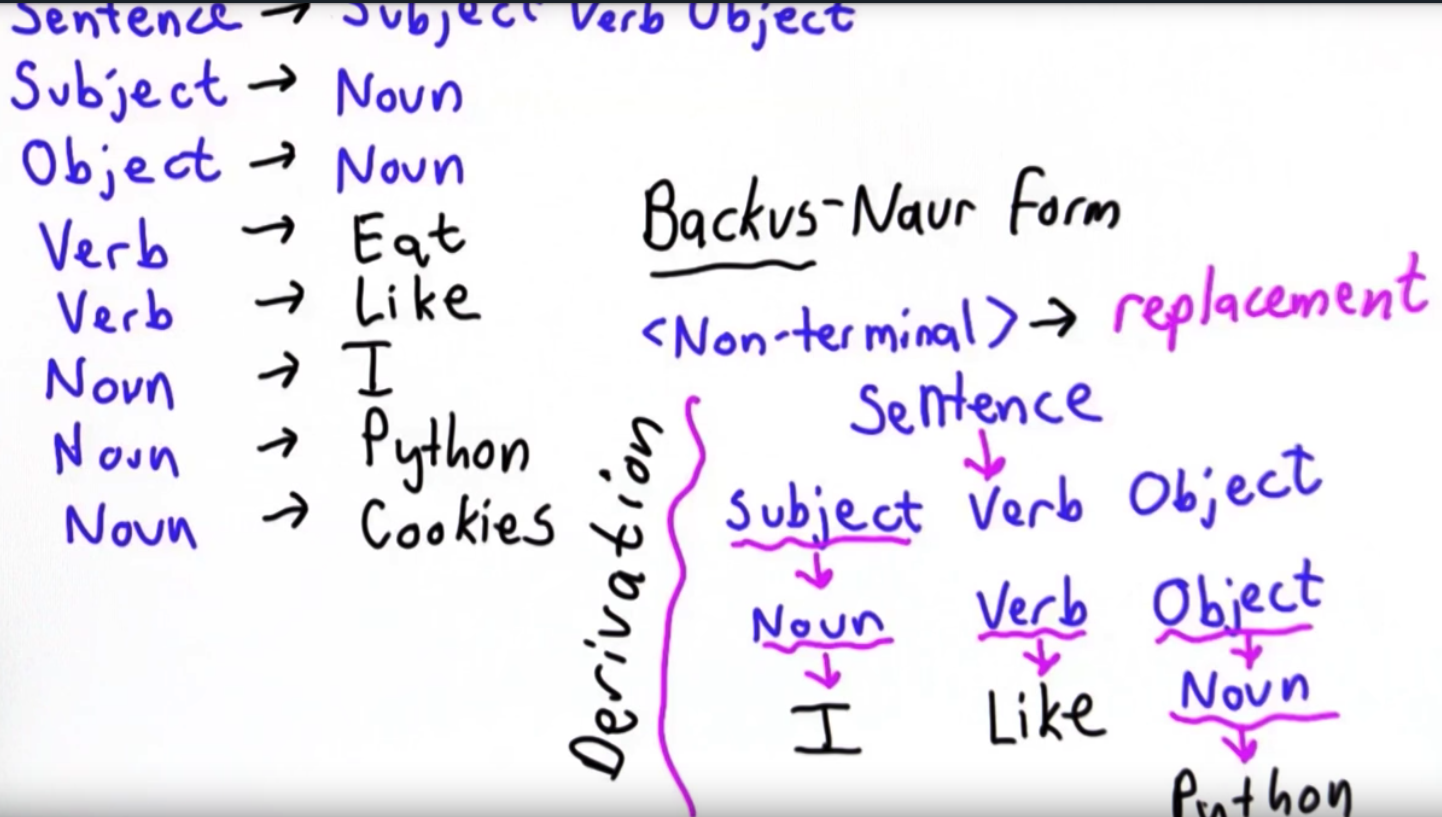 Sentence → Subject Verb Object
Subject → Noun
Object → Noun
Verb → Eat
Verb → Like
Noun → I
Noun → Python
Noun → Cookies
Backus-Naur Form
<Non-terminal> → replacement
Derivation
Sentence
Subject Verb Object
Noun Verb Object
I Like Noun
Python